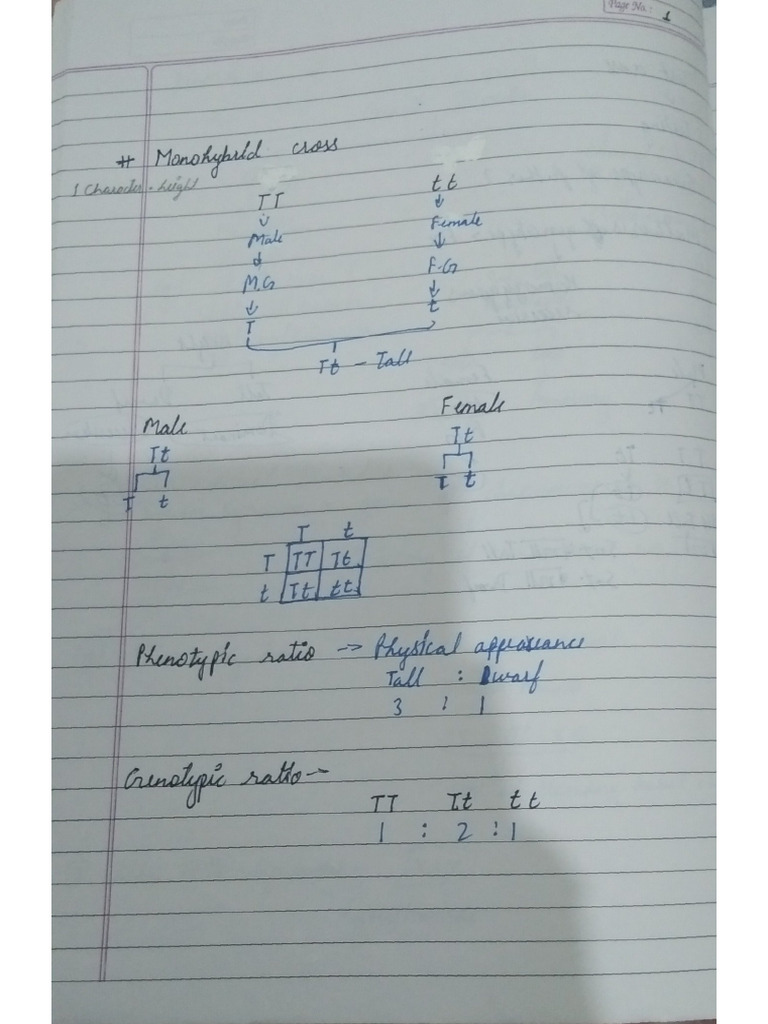 Page No.: 1
# Monohybrid cross
1 Character - height
TT tt
↓ ↓
Male Female
↓ ↓
M.G F.G
↓ ↓
T t
Tt - Tall
Male Female
Tt Tt
T t T t
T t
T TT Tt
t Tt tt
Phenotypic ratio -> Physical appearance
Tall : Dwarf
3 : 1
Genotypic ratio -
TT Tt tt
1 : 2 : 1